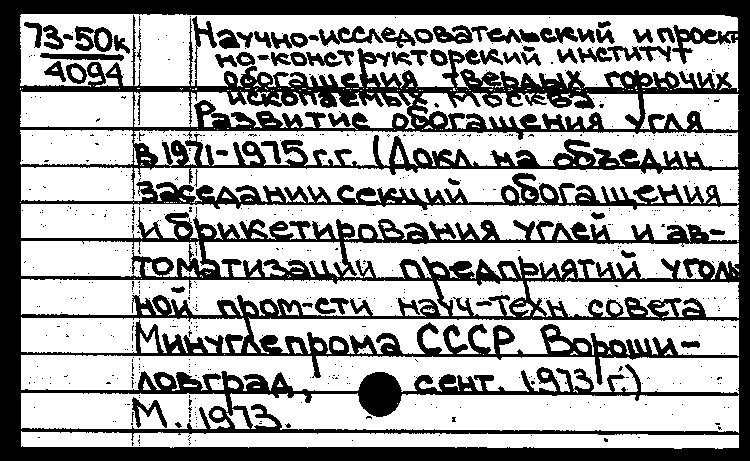 73-50к
4094
Научно-исследовательский и проект
но-конструкторский институт
обогащения твердых горючих
ископаемых. Москва.
Развитие обогащения угля
в 1971-1975 г.г. (Докл. на объедин.
заседании секций обогащения
и брикетирования углей и ав-
томатизации предприятий уголь
ной пром-сти науч-техн. совета
Минуглепрома СССР. Вороши-
ловград, сент. 1973 г.)
М., 1973.